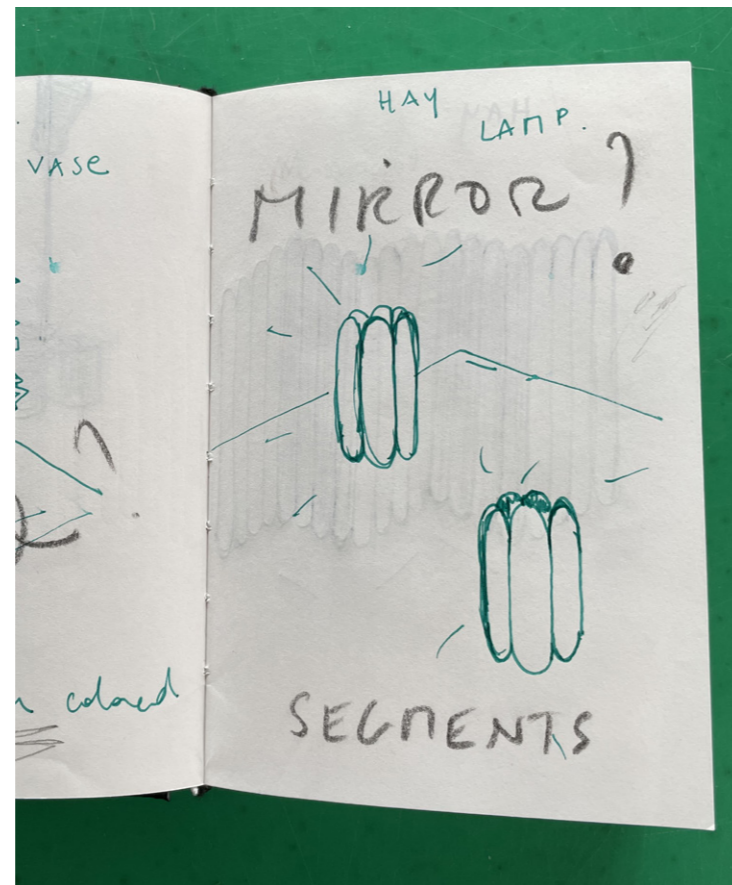 VASE
?
colored
HAY
LAMP.
MIRROR?
SEGMENTS